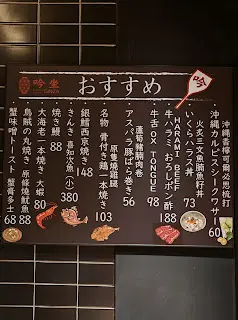 吟壹
おすすめ
吟
沖縄香檸可爾必思梳打
沖縄カルピスシークワサー 60
火炙三文魚腩魚籽丼
いくらハラス丼 73
HARAMI BEEF
牛ハラミ おろしポン酢 188
牛舌 OX TONGUE 98
蘆筍豬腩肉卷
アスパラ豚ばら巻き 56
原隻燒雞腿
名物 骨付き鶏一本焼き 103
銀鱈西京焼き 148
きんき 喜知次魚(小) 380
焼き鰻 88
大海老一本焼き 大蝦 80
烏賊の丸焼き 原條燒魷魚 88
蟹味噌トースト 蟹膏多士 68